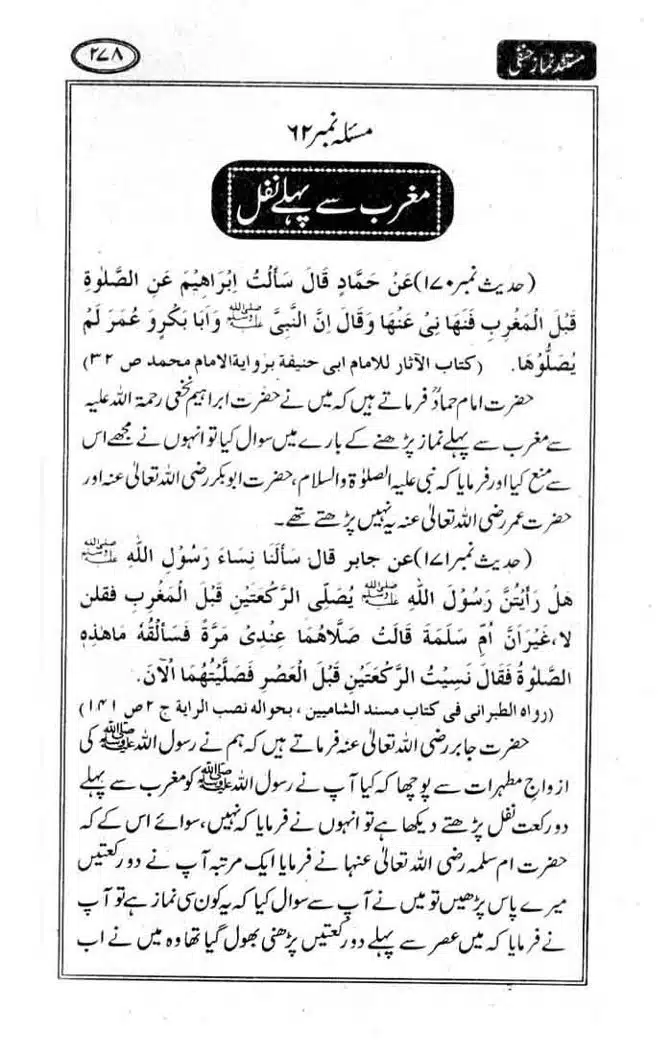 مستند نماز حنفی
۲۷۸
مسئلہ نمبر ۶۲
مغرب سے پہلے نفل
(حدیث نمبر ۱۷۰) عَنْ حَمَّادٍ قَالَ سَأَلْتُ اِبْرَاهِیْمَ عَنِ الصَّلٰوةِ
قَبْلَ الْمَغْرِبِ فَنَهَا نِیْ عَنْهَا وَقَالَ اِنَّ النَّبِیَّ ﷺ وَاَبَا بَكْرٍ وَ عُمَرَ لَمْ
یُصَلُّوْهَا. (کتاب الآثار للامام ابی حنیفة بروایة الامام محمد ص ۳۲)
حضرت امام حمادؒ فرماتے ہیں کہ میں نے حضرت ابراہیم نخعی رحمۃ اللہ علیہ
سے مغرب سے پہلے نماز پڑھنے کے بارے میں سوال کیا تو انہوں نے مجھے اس
سے منع کیا اور فرمایا کہ نبی علیہ الصلوٰۃ والسلام، حضرت ابوبکر رضی اللہ تعالیٰ عنہ اور
حضرت عمر رضی اللہ تعالیٰ عنہ یہ نہیں پڑھتے تھے۔
(حدیث نمبر ۱۷۱) عن جابر قال سَأَلْنَا نِسَاءَ رَسُوْلِ اللّٰهِ ﷺ
هَلْ رَأَیْتُنَّ رَسُوْلَ اللّٰهِ ﷺ یُصَلِّی الرَّكْعَتَیْنِ قَبْلَ الْمَغْرِبِ فقلن
لا، غَیْرَ اَنَّ اُمَّ سَلَمَةَ قَالَتْ صَلَّاهُمَا عِنْدِیْ مَرَّةً فَسَأَلْتُهٗ مَاهٰذِهِ
الصَّلٰوةُ فَقَالَ نَسِیْتُ الرَّكْعَتَیْنِ قَبْلَ الْعَصْرِ فَصَلَّیْتُهُمَا اَلْآنَ.
(رواه الطبرانی فی کتاب مسند الشامیین، بحواله نصب الرایة ج ۲ ص ۱۴۱)
حضرت جابر رضی اللہ تعالیٰ عنہ فرماتے ہیں کہ ہم نے رسول اللہ ﷺ کی
ازواج مطہرات سے پوچھا کہ کیا آپ نے رسول اللہ ﷺ کو مغرب سے پہلے
دو رکعت نفل پڑھتے دیکھا ہے تو انہوں نے فرمایا کہ نہیں، سوائے اس کے کہ
حضرت ام سلمہ رضی اللہ تعالیٰ عنہا نے فرمایا ایک مرتبہ آپ نے دو رکعتیں
میرے پاس پڑھیں تو میں نے آپ سے سوال کیا کہ یہ کون سی نماز ہے تو آپ
نے فرمایا کہ میں عصر سے پہلے دو رکعتیں پڑھنی بھول گیا تھا وہ میں نے اب